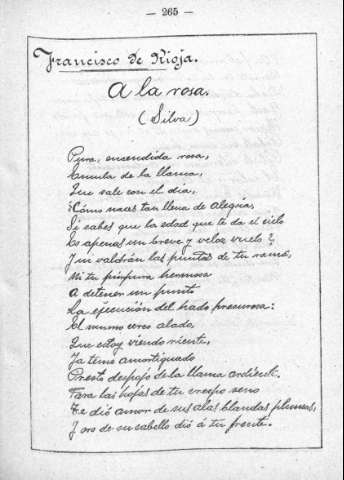 — 265 —
Francisco de Rioja.
A la rosa.
(Silva)
Pura, encendida rosa,
Émula de la llama,
Que sale con el día,
¿Cómo naces tan llena de alegría,
Si sabes que la edad que te da el cielo
Es apenas un breve y veloz vuelo?
Y ni valdrán las puntas de tu rama,
Ni tu púrpura hermosa
A detener un punto
La ejecución del hado presurosa:
El mismo cerco alado,
Que estoy viendo riente,
Ya temo amortiguado
Presto despojo de la llama ardiente.
Para las hojas de tu crespo seno
Te dió amor de sus alas blandas plumas,
Y oro de su cabello dió á tu frente.